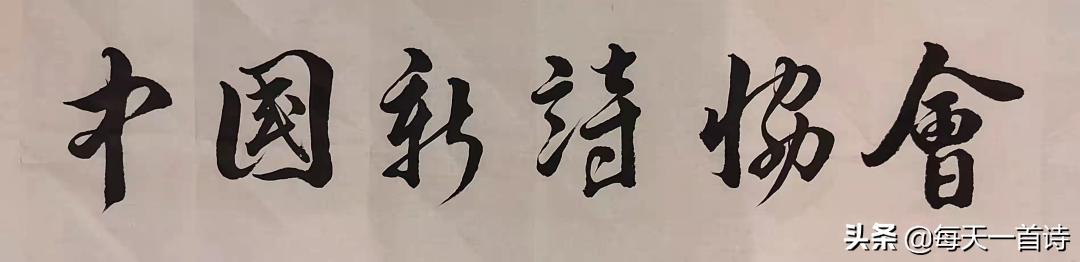 中國新詩協會
头条 @每天一首诗